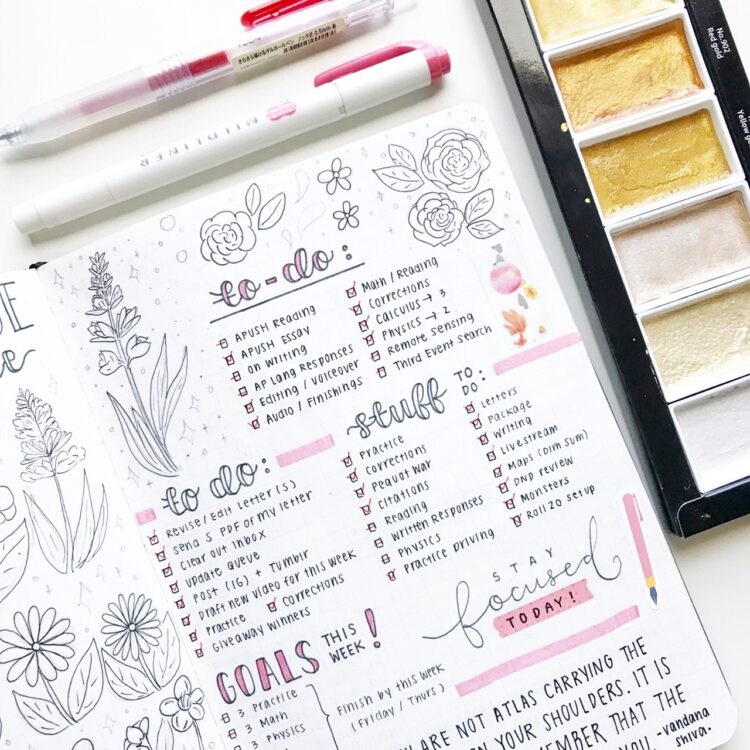 さらさら描けるゲルボールペン ノック式 0.5mm・赤
MILDLINER
No.902
Red gold
Yellow
to-do:
APUSH Reading
APUSH Essay
On Writing
AP Lang Responses
Editing / Voiceover
Audio / Finishings
Math / Reading
Corrections
Calculus → 3
Physics → 2
Remote Sensing
Third Event Search
to do:
Revise/Edit Letter(s)
Send S PDF of my letter
Clear out inbox
Update Queue
Post (IG) + Tumblr
Draft new video for this week
Practice
Corrections
Giveaway winners
stuff TO DO:
Practice
Corrections
Pequot War
Citations
Reading
Written Responses
Physics
Practice Driving
Letters
Package
Writing
Livestream
Maps (Dim Sum)
DND review
Monsters
Roll20 setup
STAY
focused
TODAY!
GOALS THIS WEEK!
3 Practice
3 Math
3 Physics
Finish by this week
(Friday / Thurs)
ARE NOT ATLAS CARRYING THE
YOUR SHOULDERS. IT IS
THAT THE
-vandana
shiva.